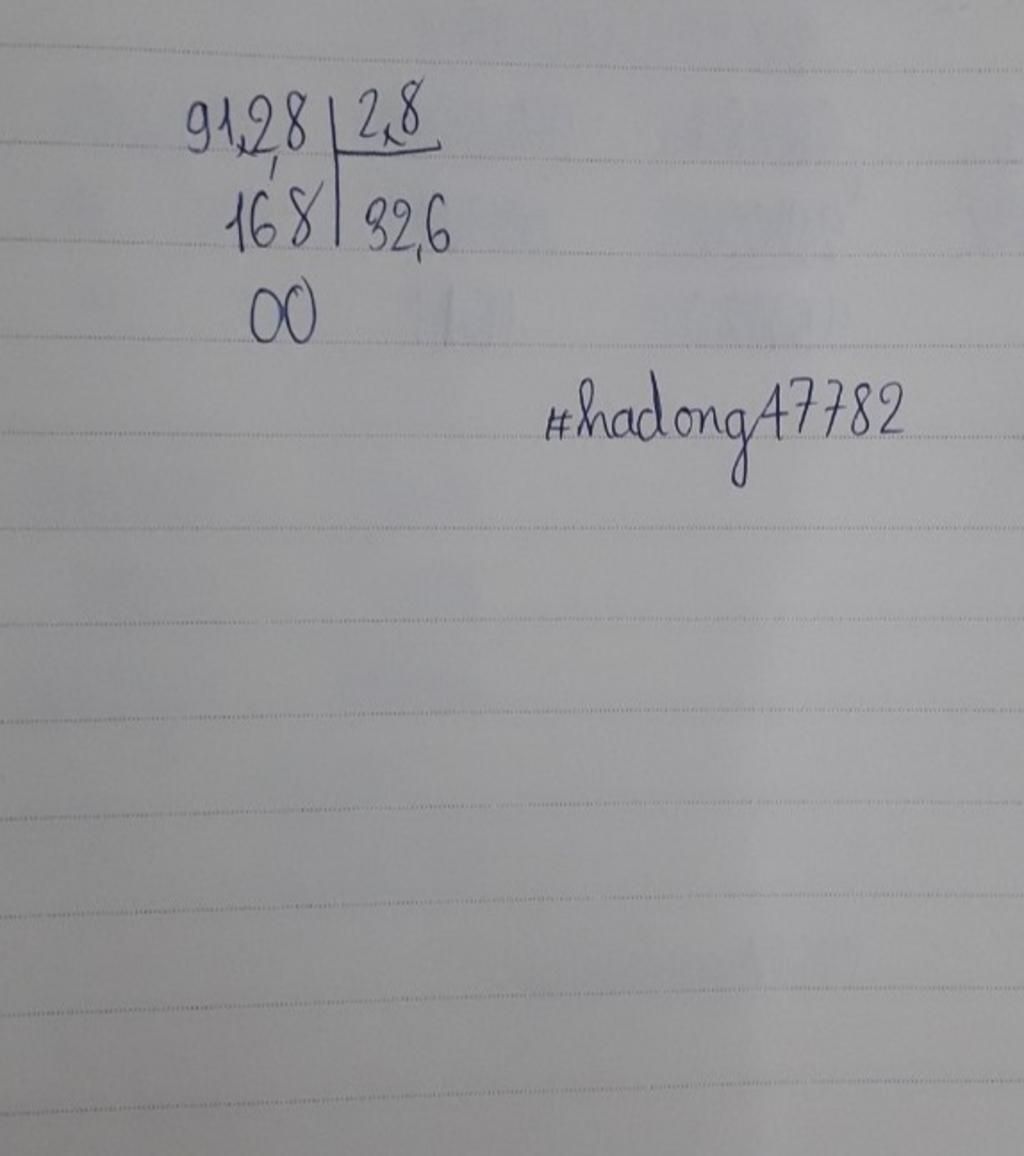 91,2,8 | 2,8
168 | 32,6
00
#hadong47782